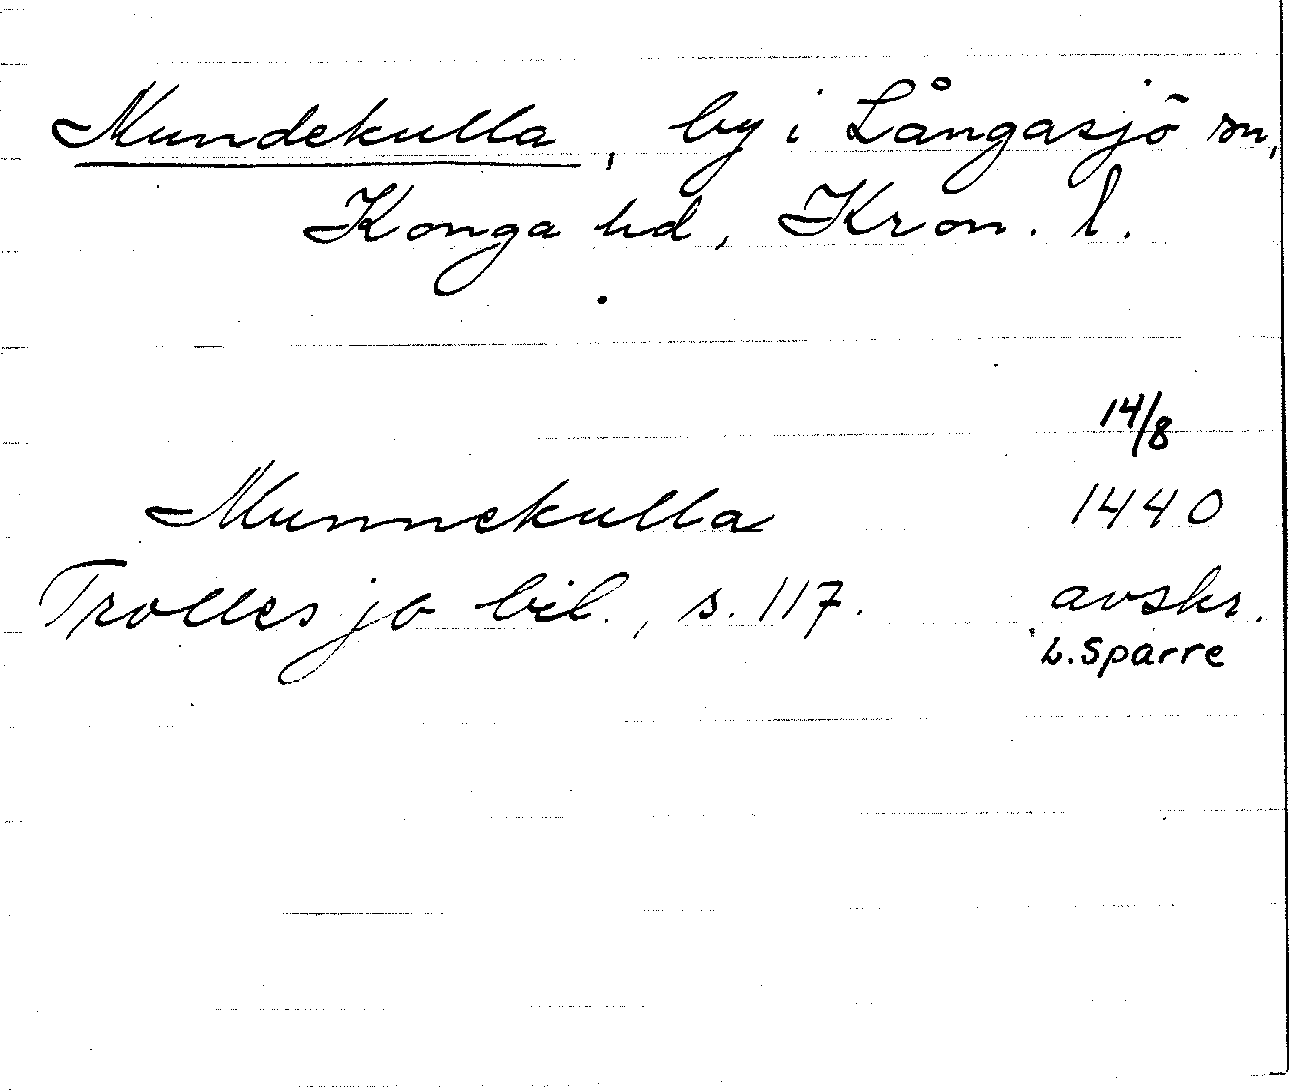 Mundekulla, by i Långasjö sn,
Konga hd, Kron. l.
14/8
Munnekulla 1440
Trolles jb bil., s. 117. avskr.
L. Sparre